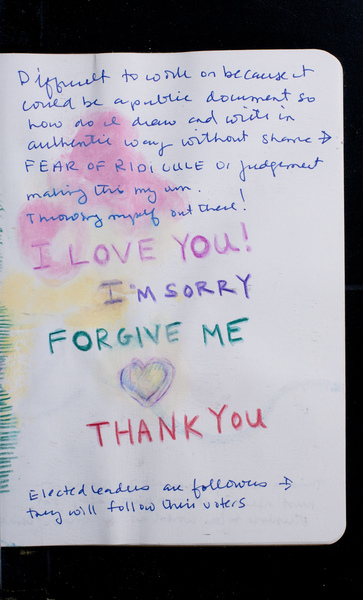 Difficult to work on because it
could be a public document so
how do I draw and write in
authentic way without shame →
FEAR OF RIDICULE or judgement
making this my own.
Throwing myself out there!
I LOVE YOU!
I'M SORRY
FORGIVE ME
THANK YOU
Elected leaders are followers →
they will follow their voters